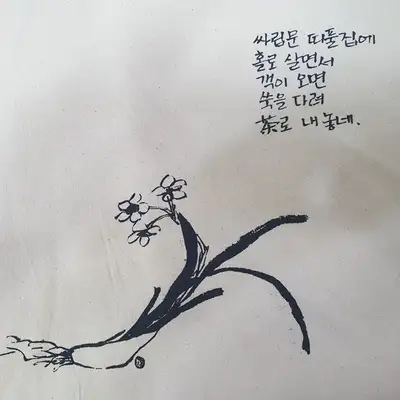 싸립문 띠풀집에
홀로 살면서
객이 오면
쑥을 다려
茶로 내 놓네.